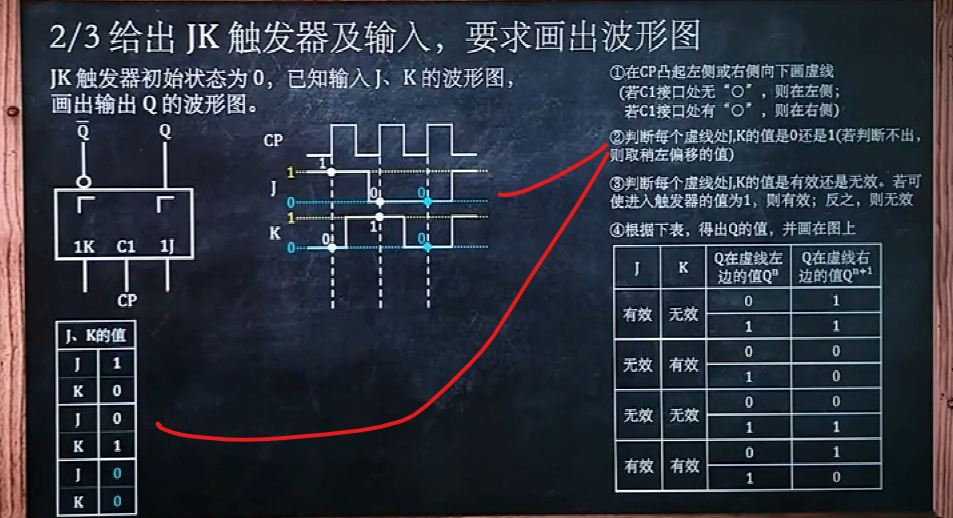 2/3 给出 JK 触发器及输入，要求画出波形图
JK 触发器初始状态为 0，已知输入 J、K 的波形图，
画出输出 Q 的波形图。
Q̅ Q
1K C1 1J
CP
CP
1
1
J
0 0
0
1
K
1
0 0
0
J、K的值
J 1
K 0
J 0
K 1
J 0
K 0
①在CP凸起左侧或右侧向下画虚线
(若C1接口处无“○”，则在左侧；
若C1接口处有“○”，则在右侧)
②判断每个虚线处J,K的值是0还是1(若判断不出，
则取稍左偏移的值)
③判断每个虚线处J,K的值是有效还是无效。若可
使进入触发器的值为1，则有效；反之，则无效
④根据下表，得出Q的值，并画在图上
J K Q在虚线左边的值Qⁿ Q在虚线右边的值Qⁿ⁺¹
有效 无效 0 1
1 1
无效 有效 0 0
1 0
无效 无效 0 0
1 1
有效 有效 0 1
1 0